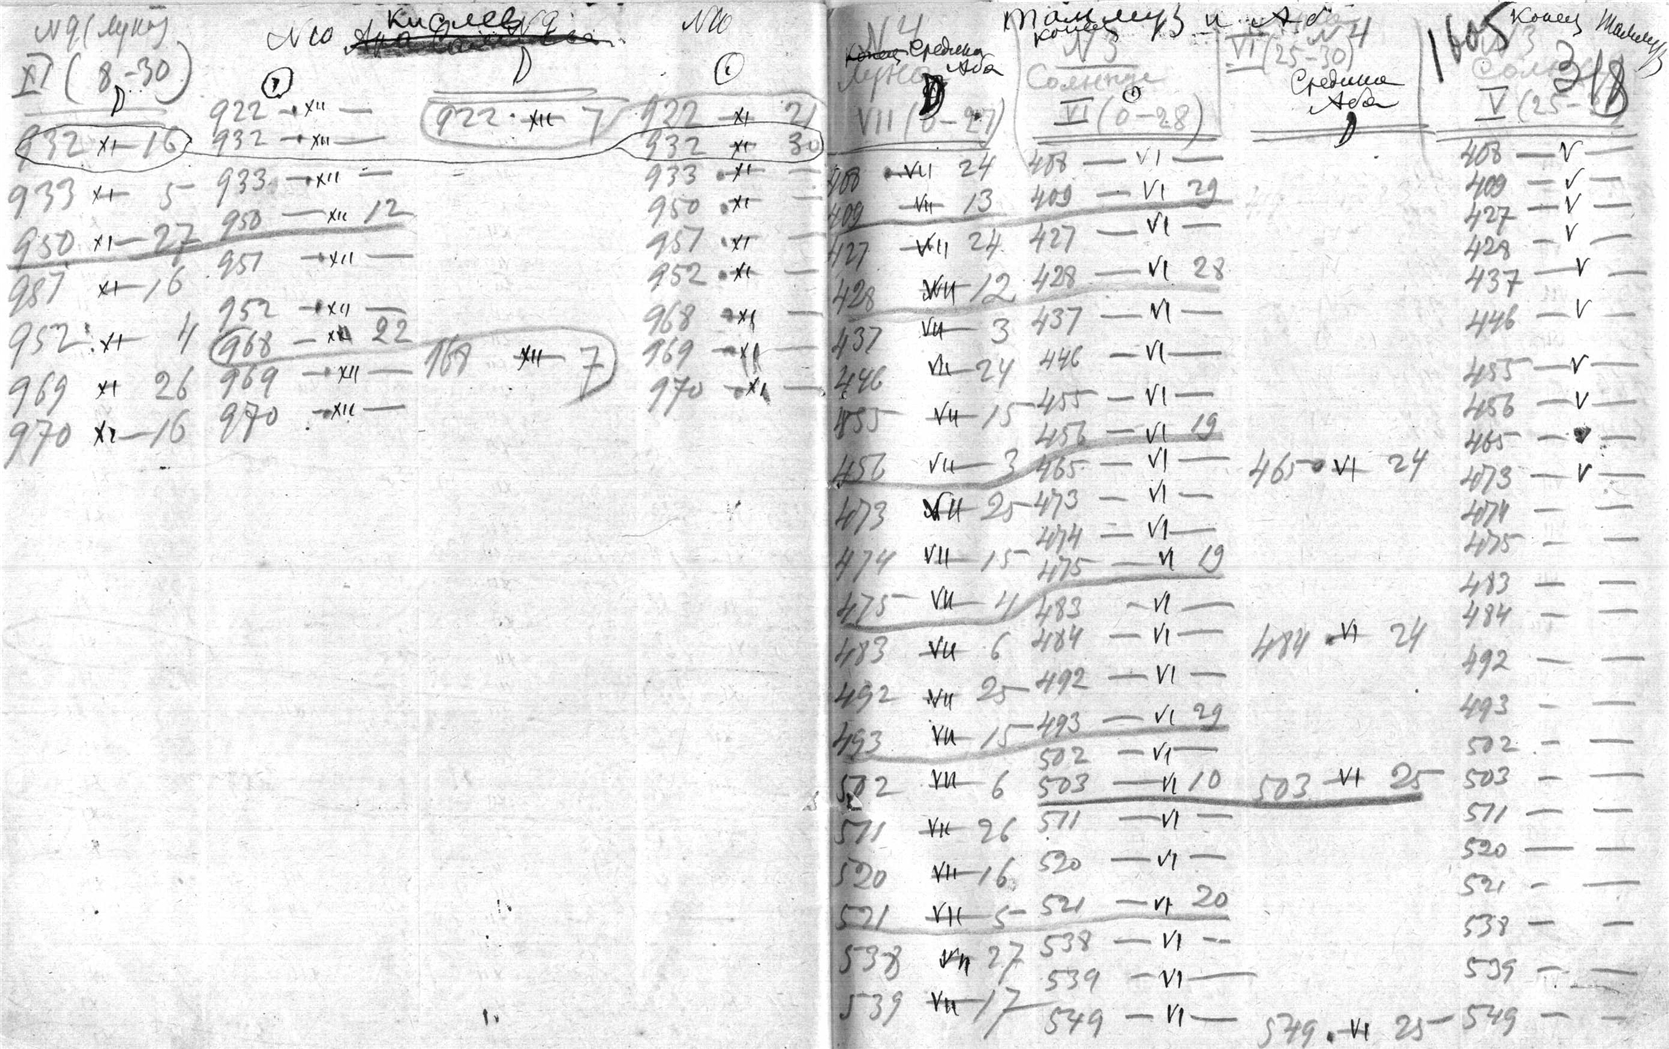 N9 (Луна)
XI (8-30)
932 XI-16
933 XI 5
950 XI-27
951 XI-16
952 XI 4
969 XI 26
970 XI-16
Кислев N9
N10
922 - XII —
932 - XII —
933 - XII —
950 — XII 12
951 - XII —
952 - XII —
968 - XII 22
969 - XII —
970 - XII —
922 - XII 7
968 XII 7
N10
922 - XI - 21
932 XI 30
933 - XI —
950 - XI —
951 - XI —
952 - XI —
968 - XI —
969 - XI —
970 - XI —
Таммуз и Аб
1605
318
N4
Конец Средина
Аба
Луна
VII (0-27)
408 - VII 24
409 - VII - 13
427 VII 24
428 VII - 12
437 VII - 3
446 VII - 24
455 VII - 15
456 VII - 3
473 VII - 25
474 VII - 15
475 VII - 4
483 VII 6
492 VII 25
493 VII - 15
502 VII - 6
511 VII - 26
520 VII - 16
521 VII - 5
538 VII 27
539 VII - 17
Конец
N3
Солнце
VI (0-28)
408 — VI —
409 — VI 29
427 — VI —
428 — VI 28
437 — VI —
446 — VI —
455 — VI —
456 — VI 19
465 — VI —
473 — VI —
474 — VI —
475 — VI 19
483 - VI —
484 — VI —
492 — VI —
493 — VI 29
502 — VI —
503 — VI 10
511 — VI —
520 — VI —
521 — VI 20
538 — VI --
539 — VI —
549 — VI —
N4
VI (25-30)
Средина
Аба
465 - VI 24
484 - VI 24
503 - VI 25
549 - VI 25
Конец Таммуз
N3
V (25-
408 — V —
409 — V —
427 — V —
428 — V —
437 — V —
446 — V —
455 — V —
456 — V —
465 — V —
473 — V —
474 — —
475 — —
483 — —
484 — —
492 — —
493 — —
502 - —
503 - —
511 — —
520 — —
521 - —
538 — —
539 — —
549 — —